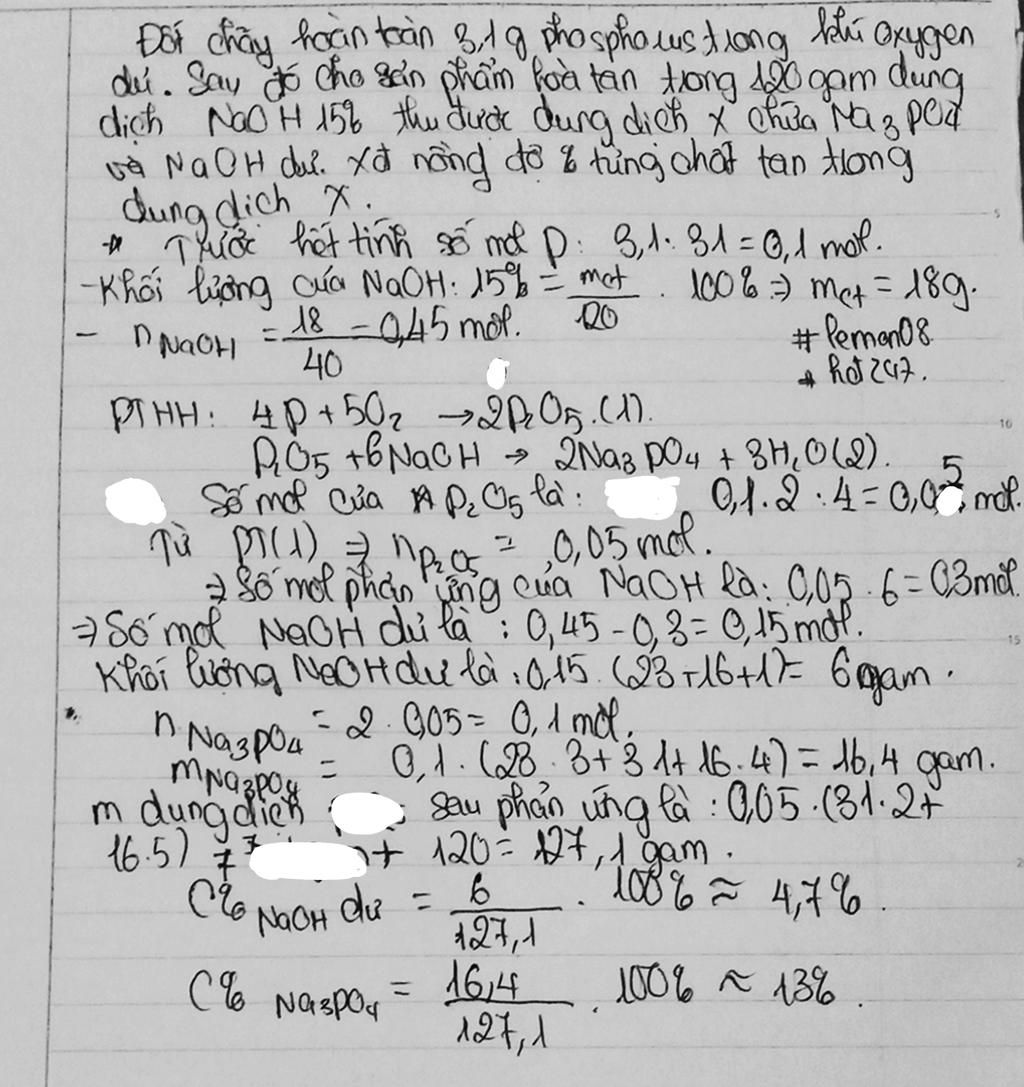 Đốt cháy hoàn toàn 3,1g phosphorus trong khí oxygen
dư. Sau đó cho sản phẩm hoà tan trong 120 gam dung
dịch NaOH 15% thu được dung dịch X chứa Na3PO4
và NaOH dư. Xđ nồng độ % từng chất tan trong
dung dịch X.
* Trước hết tính số mol P: 3,1:31=0,1 mol.
-Khối lượng của NaOH: 15% = mct/120 . 100% => mct = 18g.
- nNaOH = 18/40 = 0,45 mol.
#lemon08
* hoť247.
PTHH: 4P + 5O2 → 2P2O5.(1).
P2O5 + 6NaOH → 2Na3PO4 + 3H2O(2).
Số mol của P2O5 là: 0,1.2:4=0,05 mol.
Từ PT(1) => nP2O5 = 0,05 mol.
=> Số mol phản ứng của NaOH là: 0,05.6=0,3mol.
=> Số mol NaOH dư là: 0,45-0,3=0,15mol.
Khối lượng NaOH dư là: 0,15.(23+16+1)= 6gam.
nNa3PO4 = 2.0,05= 0,1 mol.
mNa3PO4 = 0,1.(23.3+31+16.4)=16,4 gam.
m dung dịch sau phản ứng là: 0,05.(31.2+
16.5) + 120= 127,1 gam.
C% NaOH dư = 6/127,1 . 100% ≈ 4,7%.
C% Na3PO4 = 16,4/127,1 . 100% ≈ 13%.